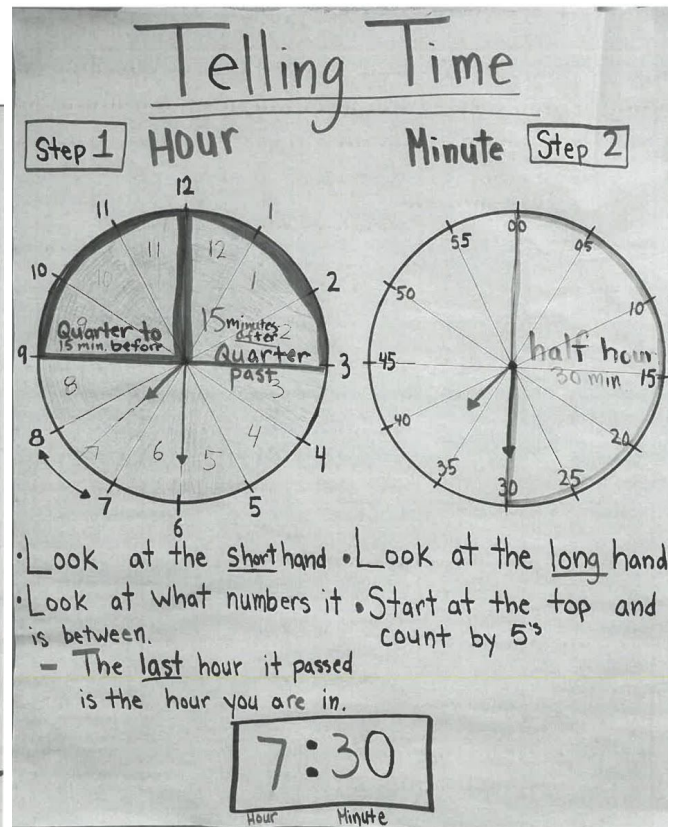 Telling Time
Step 1 Hour
Minute Step 2
12
11
1
10
2
9
3
8
4
7
5
6
11
12
10
1
9
2
8
3
7
4
6
5
Quarter to
15 min. before
15 minutes
after
Quarter
past
00
55
05
50
10
45
15
40
20
35
25
30
half hour
30 min
•Look at the short hand
•Look at what numbers it
is between.
- The last hour it passed
is the hour you are in.
•Look at the long hand
•Start at the top and
count by 5's
7:30
Hour Minute